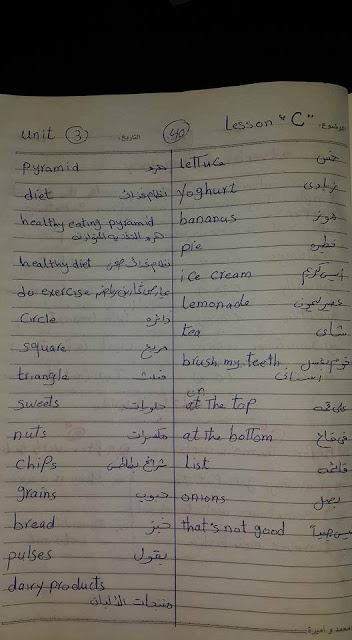 unit 3 التاريخ: 40 Lesson "C" الموضوع:
pyramid هرم
diet نظام غذائى
healthy eating pyramid
هرم التغذية المتوازنة
healthy diet نظام غذائى صحى
do exercise يمارس تمارين رياضية
Circle دائرة
square مربع
triangle مثلث
sweets حلويات
nuts مكسرات
chips شرائح بطاطس
grains حبوب
bread خبز
pulses بقول
dairy products
منتجات الألبان
lettuce خس
yoghurt زبادى
bananas موز
pie فطيرة
ice cream آيس كريم
Lemonade عصير ليمون
tea شاى
brush my teeth
أسنانى
on
at the top على قمة
at the bottom فى قاع
List قائمة
onions بصل
that's not good ليس جيداً
محمد و أميرة